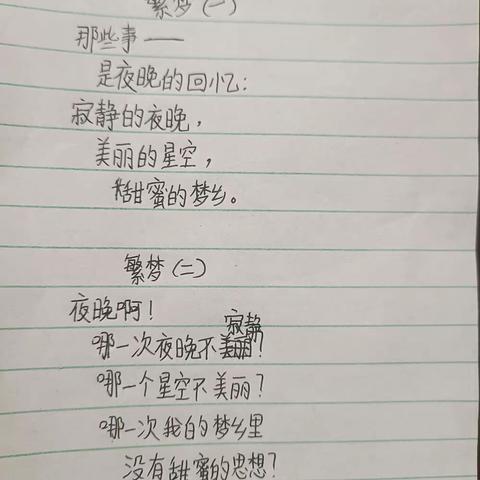 繁梦（一）
那些事——
是夜晚的回忆：
寂静的夜晚，
美丽的星空，
甜蜜的梦乡。
繁梦（二）
夜晚啊！
寂静
哪一次夜晚不美丽？
哪一个星空不美丽？
哪一次我的梦乡里
没有甜蜜的思想？